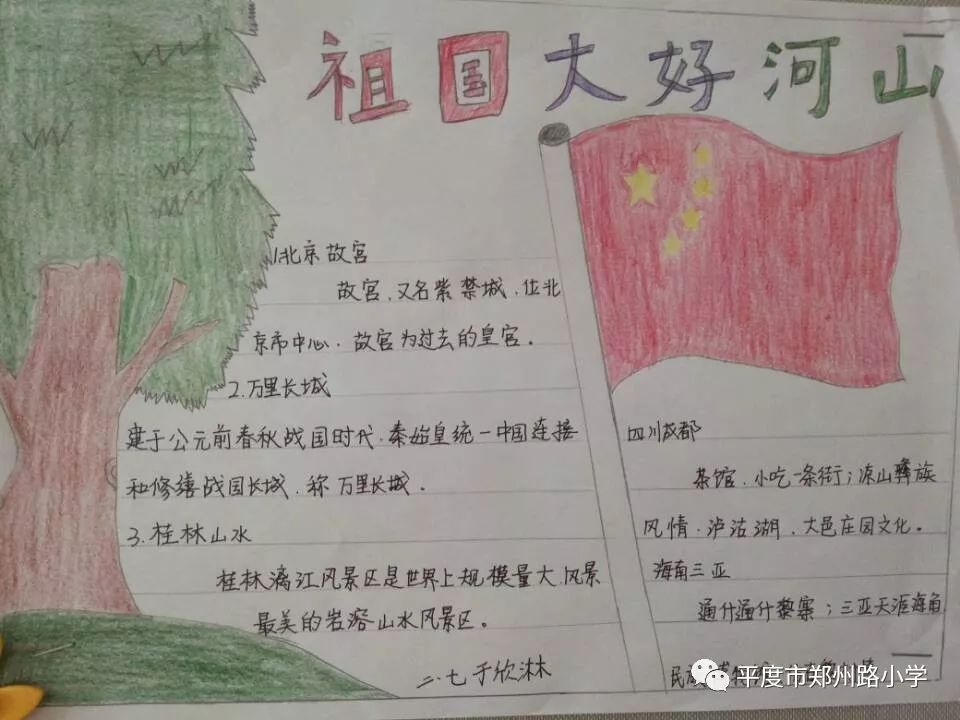 祖国大好河山
1北京故宫
故宫、又名紫禁城、位北
京市中心、故宫为过去的皇宫。
2.万里长城
建于公元前春秋战国时代、秦始皇统一中国连接
和修缮战国长城、称万里长城。
3.桂林山水
桂林漓江风景区是世界上规模量大、风景
最美的岩溶山水风景区。
二.七于欣沐
四川成都
茶馆、小吃一条街;凉山彝族
风情、泸沽湖、大邑庄园文化。
海南三亚
通什通什黎寨;三亚天涯海角
民族
平度市郑州路小学